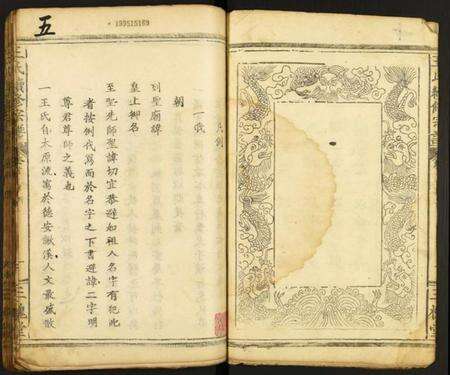 五
199515169
凡例
朝
一我
皇上御名
列聖廟諱
至聖先師聖諱切宜恭避如祖人名字有犯此
者按例代寫而於名字之下書避諱二字明
尊君尊師之義也
一王氏自太原流寓於德安敷溪人文最盛散
三槐堂
三槐堂